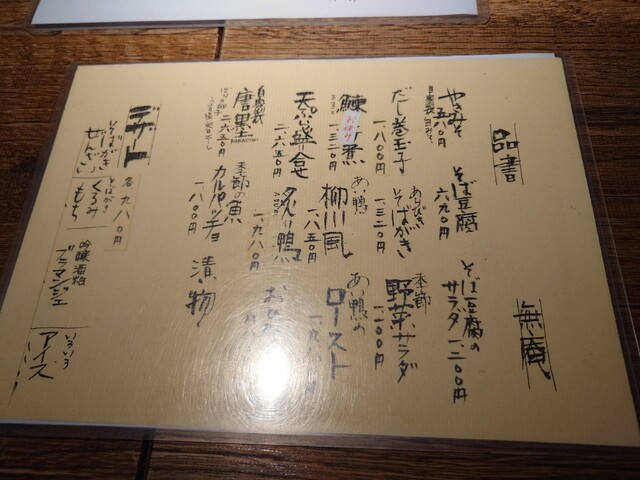 品書
無庵
やきみそ
自家製白みそ
五八〇円
そば豆腐
六九〇円
そば豆腐の
サラダ
一.二〇〇円
だし巻玉子
一.一〇〇円
あらびき
そばがき
一.三二〇円
季節
野菜サラダ
一.一〇〇円
鰊
煮
あい鴨
柳川風
一.八五〇円
あい鴨の
ロースト
天ぷら盛合せ
二.六五〇円
炙り鴨
一.九八〇円
自家製
唐墨
KARASUMI
二.六五〇円
季節の魚
カルパッチョ
一.八〇〇円
漬物
デザート
各九八〇円
そばがき
ぜんざい
そばがき
くるみ
もち
吟醸酒粕
ブラマンジェ
いろいろ
アイス